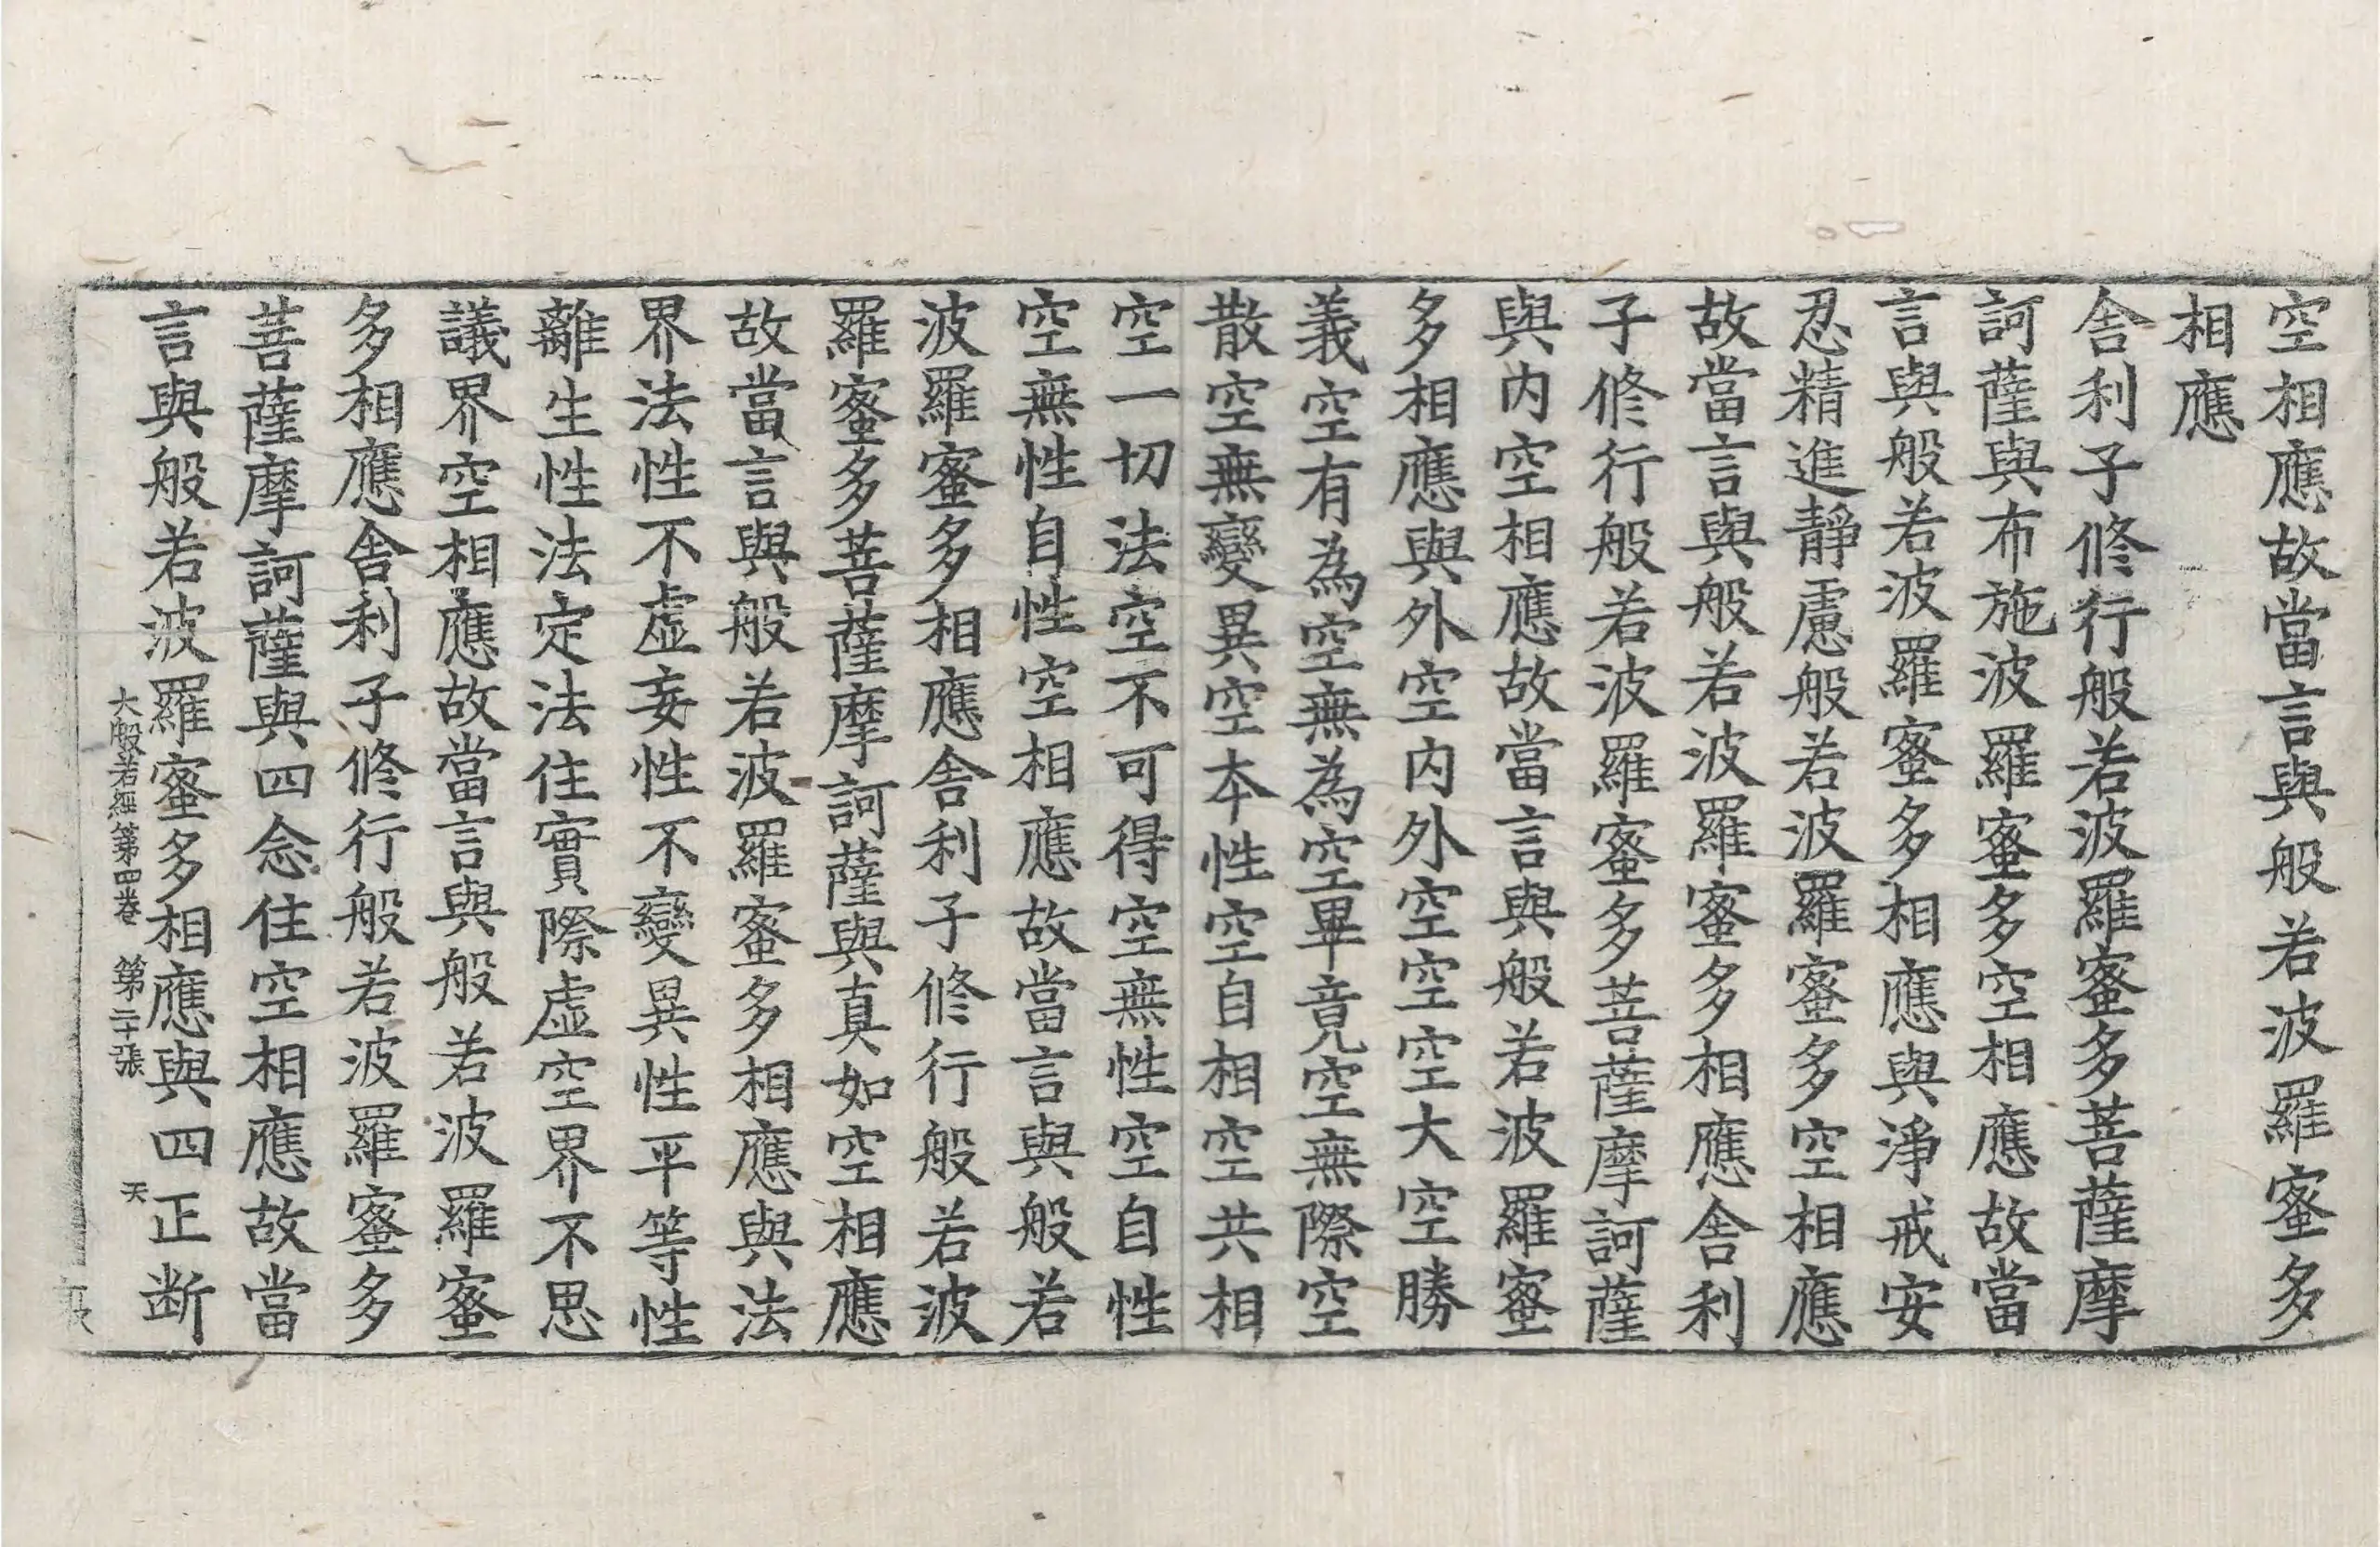 空相應故當言與般若波羅蜜多
相應
舎利子修行般若波羅蜜多菩薩摩
訶薩與布施波羅蜜多空相應故當
言與般若波羅蜜多相應與淨戒安
忍精進靜慮般若波羅蜜多空相應
故當言與般若波羅蜜多相應舎利
子修行般若波羅蜜多菩薩摩訶薩
與内空相應故當言與般若波羅蜜
多相應與外空内外空空空大空勝
義空有為空無為空畢竟空無際空
散空無變異空本性空自相空共相
空一切法空不可得空無性空自性
空無性自性空相應故當言與般若
波羅蜜多相應舎利子修行般若波
羅蜜多菩薩摩訶薩與真如空相應
故當言與般若波羅蜜多相應與法
界法性不虛妄性不變異性平等性
離生性法定法住實際虛空界不思
議界空相應故當言與般若波羅蜜
多相應舎利子修行般若波羅蜜多
菩薩摩訶薩與四念住空相應故當
言與般若波羅蜜多相應與四正断
大般若經第四卷 第二十張 天